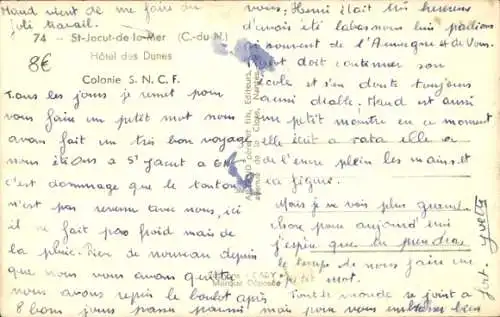 Maud vient de me faire un
joli travail.
74 - St-Jacut-de-la-Mer (C.-du-N.)
Hôtel des Dunes
8€
Colonie S. N. C. F.
Tous les jours je remet pour
vous faire un petit mot nous
avons fait un très bon voyage
nous étions a St Jacut a 6h
c'est dommage que le tonton
n'est pas revenu avec nous, ici
il ne fait pas froid mais de
la pluie. Rien de nouveau depuis
que nous vous avons quitté
nous avons repris le boulot après
8 bons jours passé parmi
vous; Henri était très heureux
d'avoir été labas nous lui parlions
si souvent de l'Auvergne et de vous.
doit continuer son
école et s'en doute toujours
aussi diable; Maud est aussi
un petit monstre en ce moment
elle était a cata elle a
de l'encre plein les mains et
la figure.
Mais je ne vois plus grand
chose pour aujourd'hui
j'espère que tu prendras
le temps de nous faire un
petit mot.
Tout le monde se joint a
mais pour vous embrasser bien
fort. Yvette
Marque Déposée